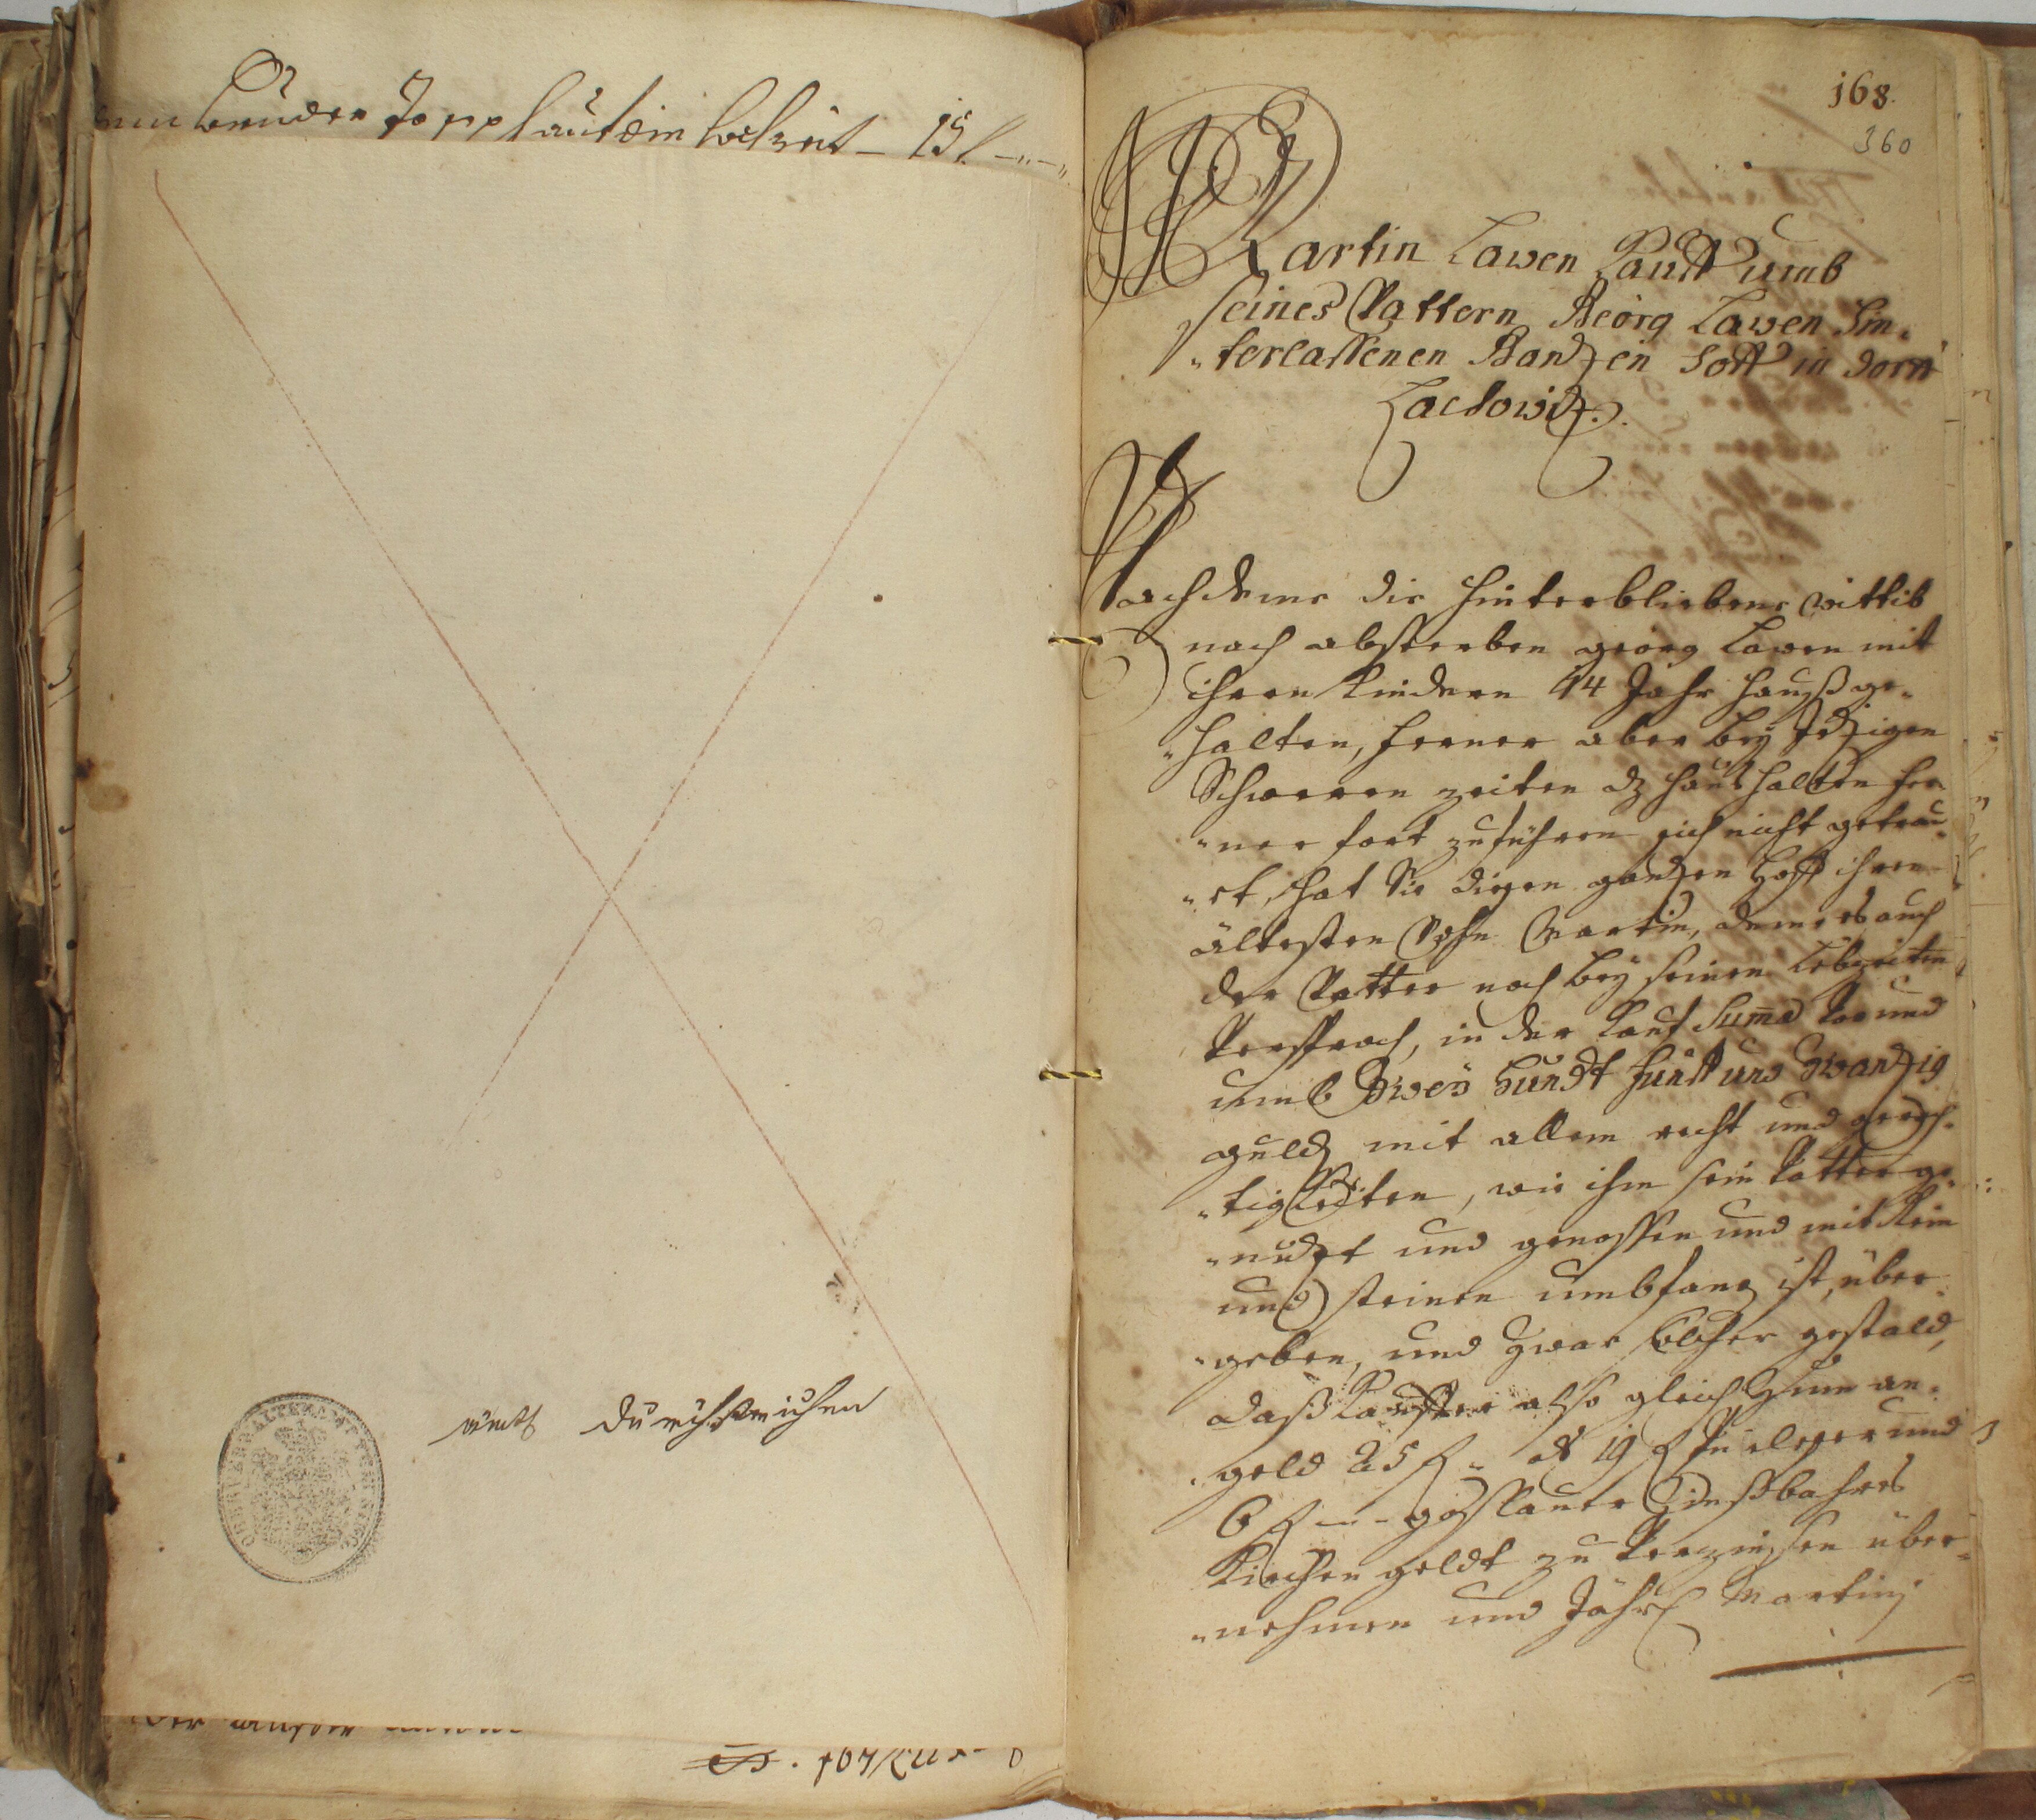 15 f
nicht durchstrichen
168.
360
Martin Lawen Kauff umb
seines Vattern Georg Lawen hin„
„terlassenen Gantzen Hoff in dorff
Lachowitz.
Nachdeme die hinterbliebene wittib
nach absterben georg Lawen mit
ihren Kindern 14 Jahr haußge„
„halten, ferner aber bey Jetzigen
Schweren zeiten dz haushalten fer„
„ner fort zuführen sich nicht getrau„
„et, hat Sie diesen gantzen Hoff ihren
ältesten Sohn Martin, deme es auch
der Vatter noch bey seinen Lebzeiten
Versprach, in der Kauf Suma
umb Zwey Hundt Fünff und Zwantzig
guld mit allem recht und gerech„
„tigkeiten, wie ihm sein Vatter ge„
„nutzt und genossen und mit Rein
und steinen umbfang ist, über„
„geben, und Zwar solcher gestald,
daß Kauffer also gleich Zum an„
geld 25 f 19 f und
6 f Zinßbahres
Kirchen geldt zu Verzinsen über„
„nehmen und Jährl Martinj